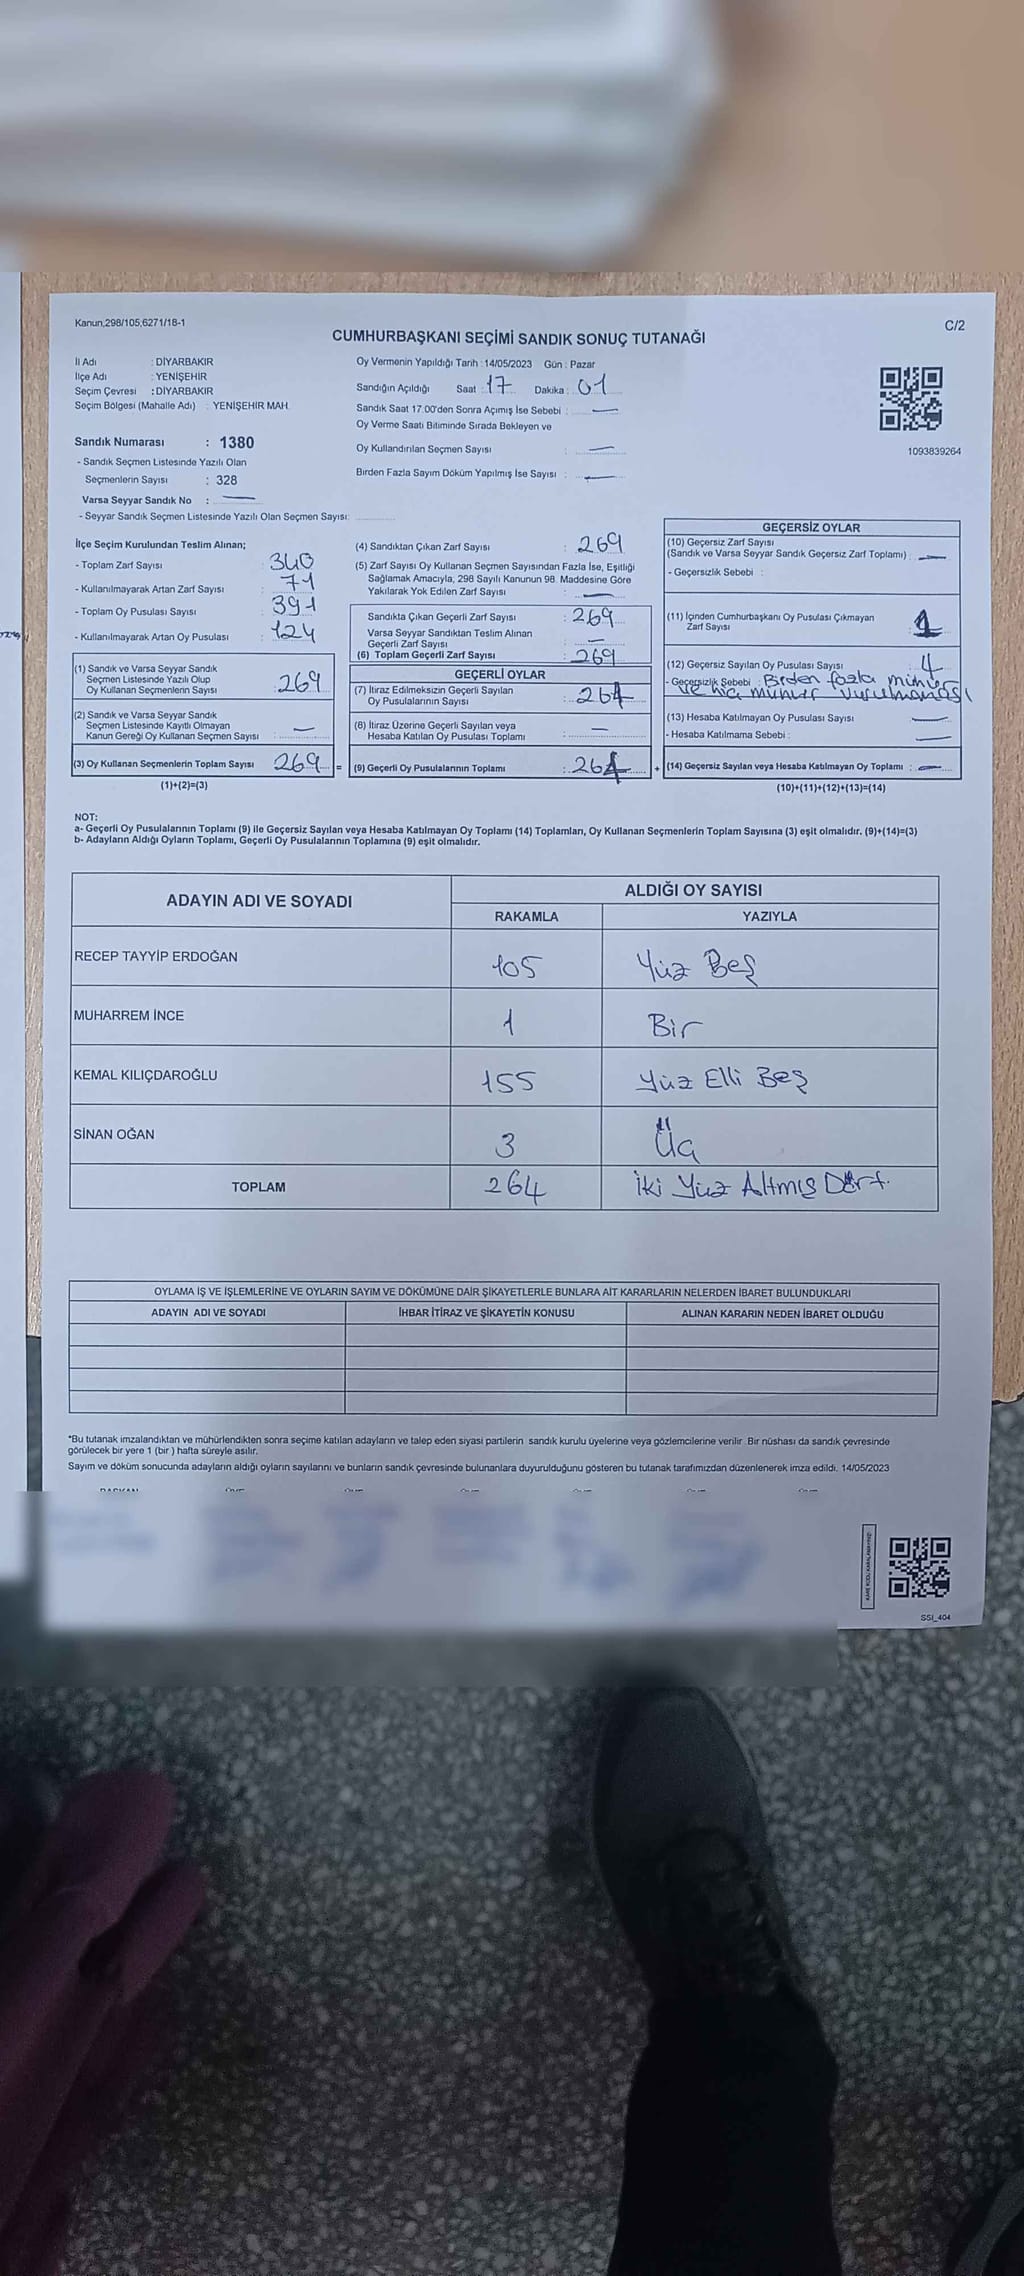 Kanun,298/105,6271/18-1
C/2
CUMHURBAŞKANI SEÇİMİ SANDIK SONUÇ TUTANAĞI
İl Adı : DİYARBAKIR
İlçe Adı : YENİŞEHİR
Seçim Çevresi : DİYARBAKIR
Seçim Bölgesi (Mahalle Adı) : YENİŞEHİR MAH.
Sandık Numarası : 1380
- Sandık Seçmen Listesinde Yazılı Olan
Seçmenlerin Sayısı : 328
Varsa Seyyar Sandık No : —
- Seyyar Sandık Seçmen Listesinde Yazılı Olan Seçmen Sayısı:
Oy Vermenin Yapıldığı Tarih : 14/05/2023 Gün : Pazar
Sandığın Açıldığı Saat : 17 Dakika : 01
Sandık Saat 17.00'den Sonra Açımış İse Sebebi : —
Oy Verme Saati Bitiminde Sırada Bekleyen ve
Oy Kullandırılan Seçmen Sayısı : —
Birden Fazla Sayım Döküm Yapılmış İse Sayısı : —
1093839264
İlçe Seçim Kurulundan Teslim Alınan;
- Toplam Zarf Sayısı : 340
- Kullanılmayarak Artan Zarf Sayısı : 71
- Toplam Oy Pusulası Sayısı : 391
- Kullanılmayarak Artan Oy Pusulası : 124
(1) Sandık ve Varsa Seyyar Sandık
Seçmen Listesinde Yazılı Olup
Oy Kullanan Seçmenlerin Sayısı : 269
(2) Sandık ve Varsa Seyyar Sandık
Seçmen Listesinde Kayıtlı Olmayan
Kanun Gereği Oy Kullanan Seçmen Sayısı : —
(3) Oy Kullanan Seçmenlerin Toplam Sayısı 269 =
(1)+(2)=(3)
(4) Sandıktan Çıkan Zarf Sayısı : 269
(5) Zarf Sayısı Oy Kullanan Seçmen Sayısından Fazla İse, Eşitliği
Sağlamak Amacıyla, 298 Sayılı Kanunun 98. Maddesine Göre
Yakılarak Yok Edilen Zarf Sayısı : —
Sandıkta Çıkan Geçerli Zarf Sayısı : 269
Varsa Seyyar Sandıktan Teslim Alınan
Geçerli Zarf Sayısı : —
(6) Toplam Geçerli Zarf Sayısı : 269
GEÇERLİ OYLAR
(7) İtiraz Edilmeksizin Geçerli Sayılan
Oy Pusulalarının Sayısı : 264
(8) İtiraz Üzerine Geçerli Sayılan veya
Hesaba Katılan Oy Pusulası Toplamı : —
(9) Geçerli Oy Pusulalarının Toplamı : 264 +
GEÇERSİZ OYLAR
(10) Geçersiz Zarf Sayısı
(Sandık ve Varsa Seyyar Sandık Geçersiz Zarf Toplamı) : —
- Geçersizlik Sebebi :
(11) İçinden Cumhurbaşkanı Oy Pusulası Çıkmayan
Zarf Sayısı : 1
(12) Geçersiz Sayılan Oy Pusulası Sayısı : 4
- Geçersizlik Sebebi : Birden fazla mühür
ve hiç mühür vurulmaması
(13) Hesaba Katılmayan Oy Pusulası Sayısı : —
- Hesaba Katılmama Sebebi : —
(14) Geçersiz Sayılan veya Hesaba Katılmayan Oy Toplamı : —
(10)+(11)+(12)+(13)=(14)
NOT:
a- Geçerli Oy Pusulalarının Toplamı (9) ile Geçersiz Sayılan veya Hesaba Katılmayan Oy Toplamı (14) Toplamları, Oy Kullanan Seçmenlerin Toplam Sayısına (3) eşit olmalıdır. (9)+(14)=(3)
b- Adayların Aldığı Oyların Toplamı, Geçerli Oy Pusulalarının Toplamına (9) eşit olmalıdır.
ADAYIN ADI VE SOYADI ALDIĞI OY SAYISI
RAKAMLA YAZIYLA
RECEP TAYYİP ERDOĞAN 105 Yüz Beş
MUHARREM İNCE 1 Bir
KEMAL KILIÇDAROĞLU 155 Yüz Elli Beş
SİNAN OĞAN 3 Üç
TOPLAM 264 İki Yüz Altmış Dört
OYLAMA İŞ VE İŞLEMLERİNE VE OYLARIN SAYIM VE DÖKÜMÜNE DAİR ŞİKAYETLERLE BUNLARA AİT KARARLARIN NELERDEN İBARET BULUNDUKLARI
ADAYIN ADI VE SOYADI İHBAR İTİRAZ VE ŞİKAYETİN KONUSU ALINAN KARARIN NEDEN İBARET OLDUĞU
*Bu tutanak imzalandıktan ve mühürlendikten sonra seçime katılan adayların ve talep eden siyasi partilerin sandık kurulu üyelerine veya gözlemcilerine verilir. Bir nüshası da sandık çevresinde
görülecek bir yere 1 (bir ) hafta süreyle asılır.
Sayım ve döküm sonucunda adayların aldığı oyların sayılarını ve bunların sandık çevresinde bulunanlara duyurulduğunu gösteren bu tutanak tarafımızdan düzenlenerek imza edildi. 14/05/2023
SSI_404